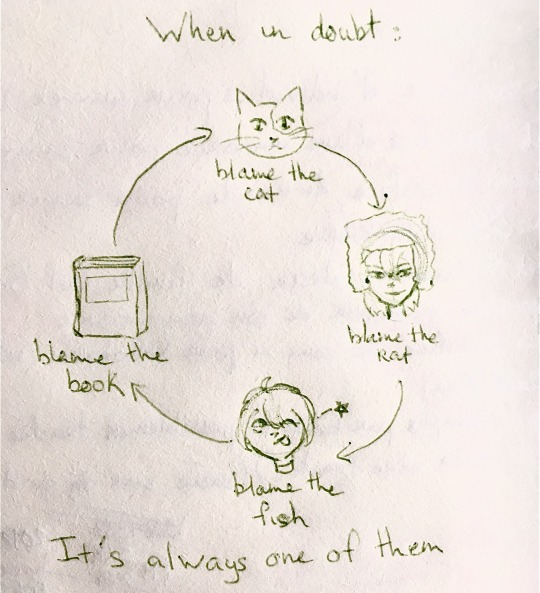 When in doubt:
blame the
cat
blame the
rat
blame the
fish
blame the
book
It's always one of them